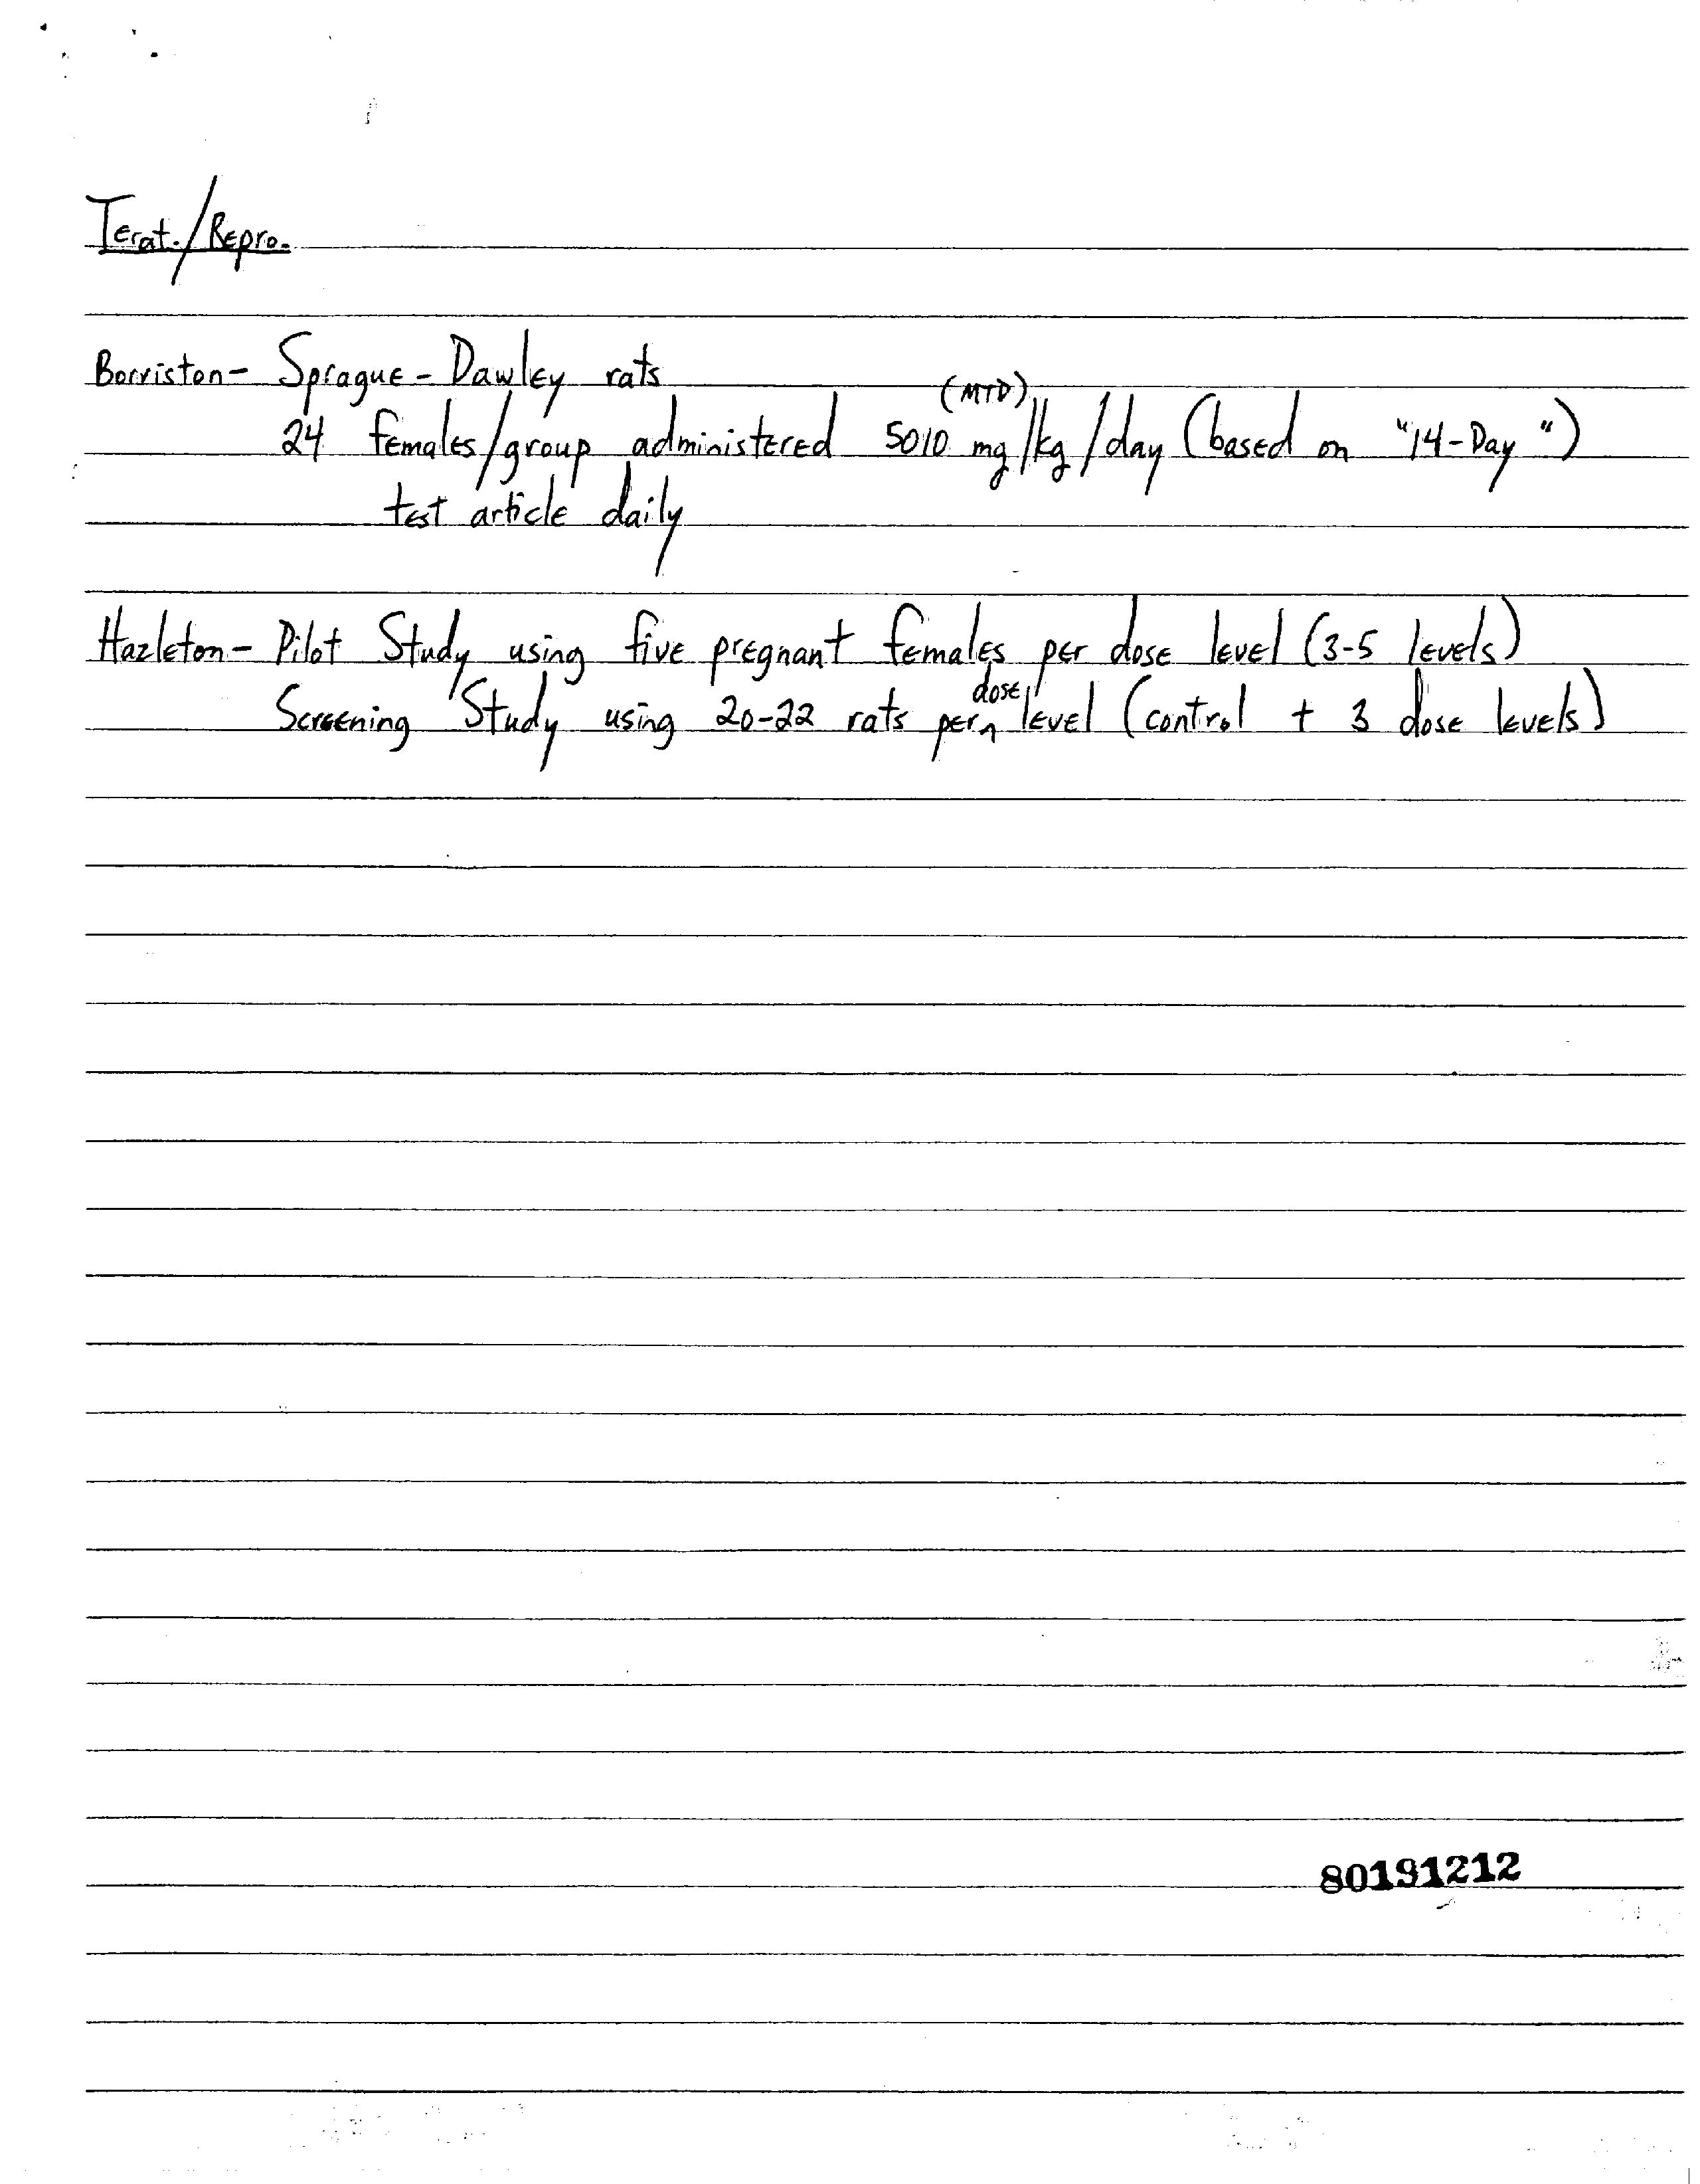 Terat./Repro.
Borriston- Sprague-Dawley rats
(MTD)
24 females/group administered 5010 mg/kg/day (based on "14-Day")
test article daily
Hazleton- Pilot Study using five pregnant females per dose level (3-5 levels)
Screening Study using 20-22 rats per dose level (control + 3 dose levels)
80191212